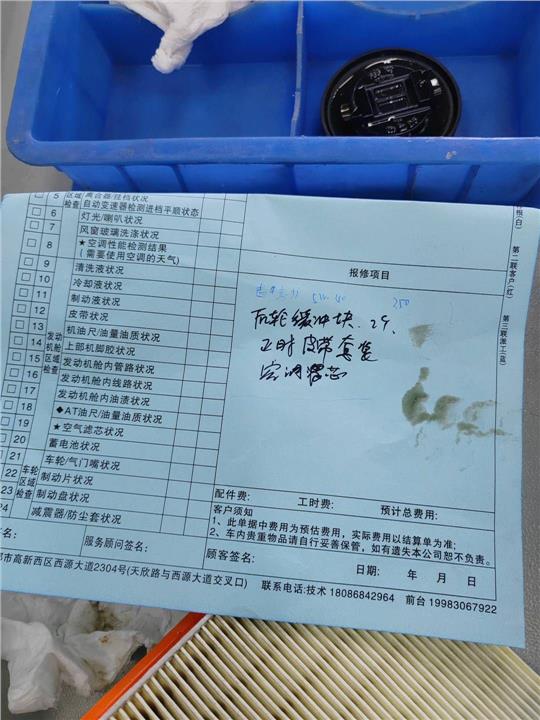 5 离合器/挂档状况
区域检查
自动变速器检测进档平顺状态
6 灯光/喇叭状况
7 风窗玻璃洗涤状况
8 ★空调性能检测结果
(需要使用空调的天气)
9 清洗液状况
10 冷却液状况
11 制动液状况
12 皮带状况
13 机油尺/油量油质状况
14 上部机脚胶状况
15 发动机舱内管路状况
16 发动机舱内线路状况
17 发动机舱内油渍状况
18 ◆AT油尺/油量油质状况
19 ★空气滤芯状况
20 蓄电池状况
21 车轮/气门嘴状况
22 制动片状况
23 制动盘状况
24 减震器/防尘套状况
发动机舱区域检查
车轮区域检查
报修项目
5W-40 250
后轮缓冲块. 2个、
正时皮带套装
空调滤芯
配件费: 工时费: 预计总费用:
客户须知
1、此单据中费用为预估费用，实际费用以结算单为准;
2、车内贵重物品请自行妥善保管，如有遗失本公司恕不负责。
签名: 服务顾问签名: 顾客签名: 日期: 年 月 日
都市高新西区西源大道2304号(天欣路与西源大道交叉口) 联系电话:技术 18086842964 前台 19983067922
根(白)
第二联客户(红)
第三联派工(蓝)